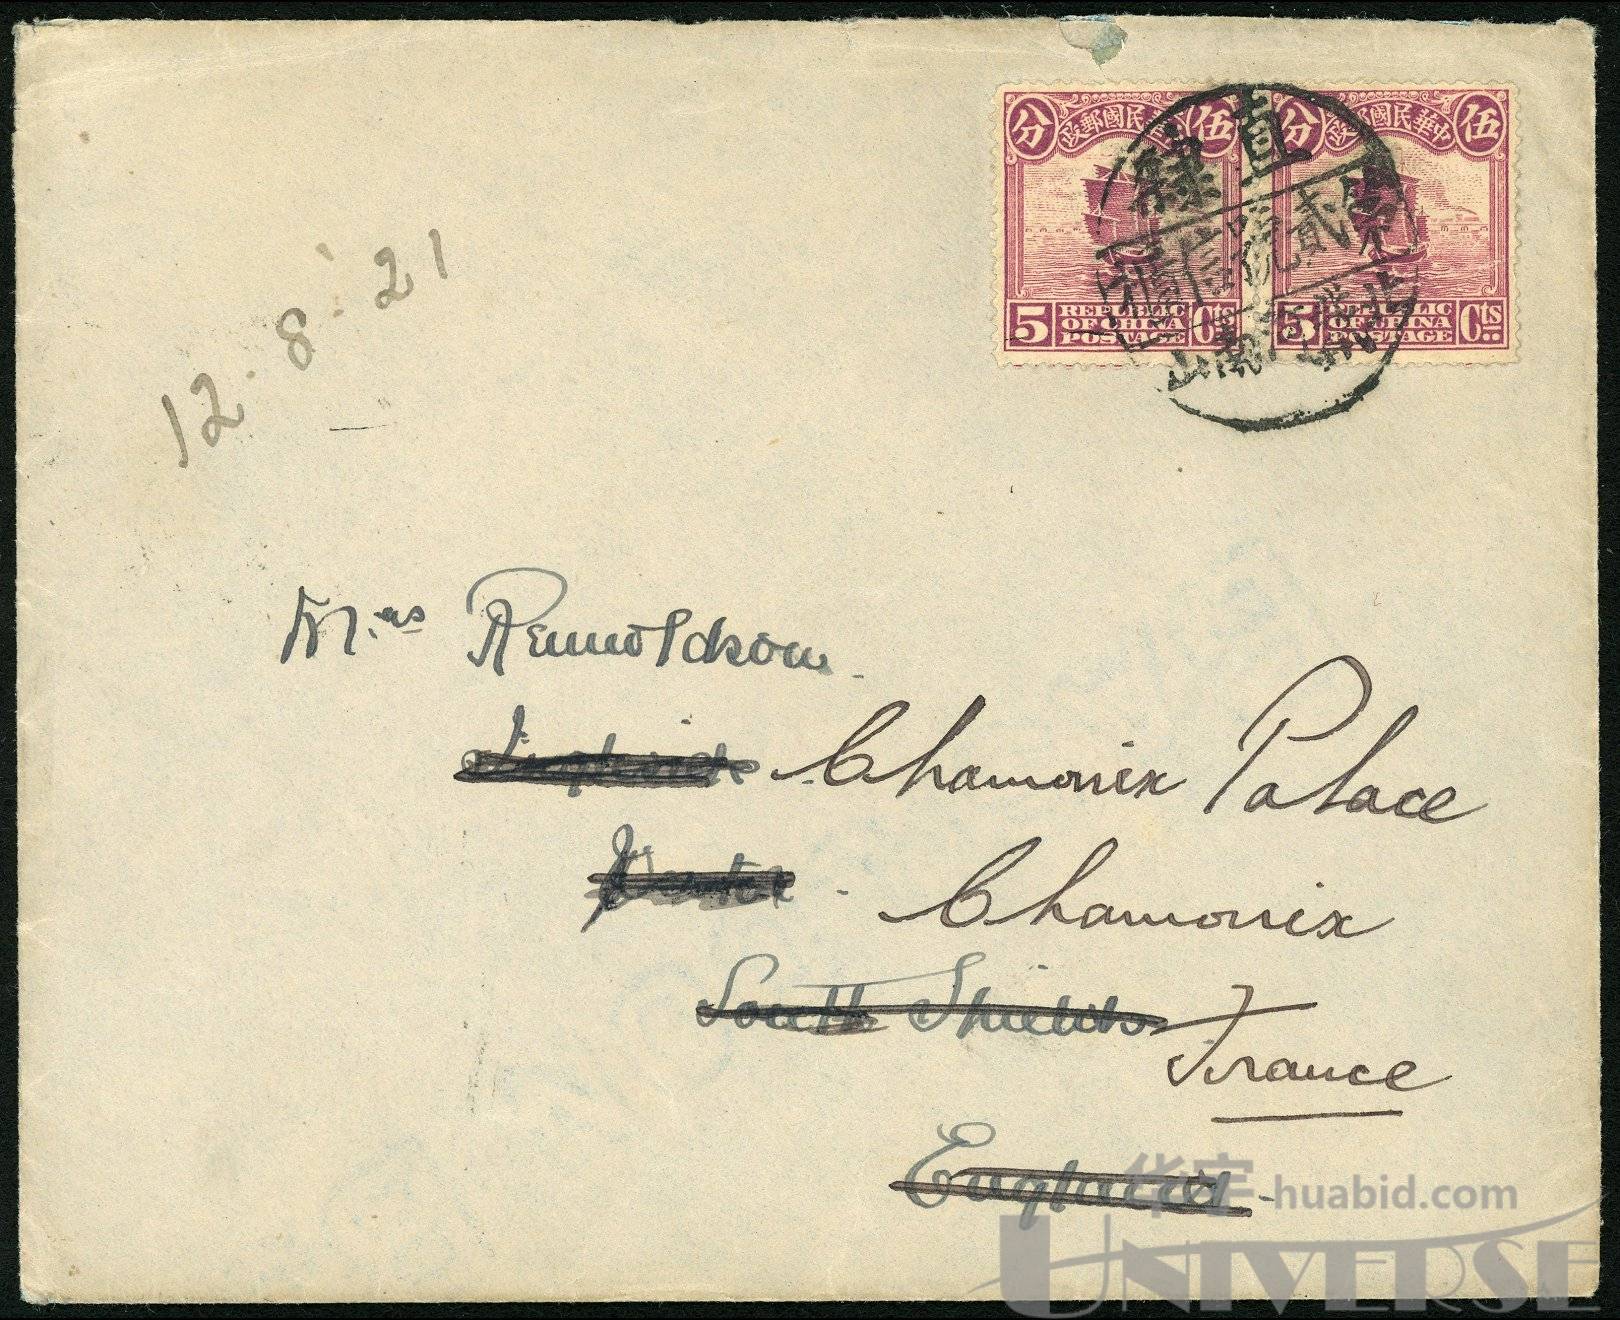 分 中華民國郵政 伍
分 中華民國郵政 伍
5 REPUBLIC OF CHINA POSTAGE Cts
5 REPUBLIC OF CHINA POSTAGE Cts
直隸
12.8.21
Mrs Rennoldson.
Chamonix Palace
Chamonix
South Shields
France
England
华宇 huabid.com
UNIVERSE